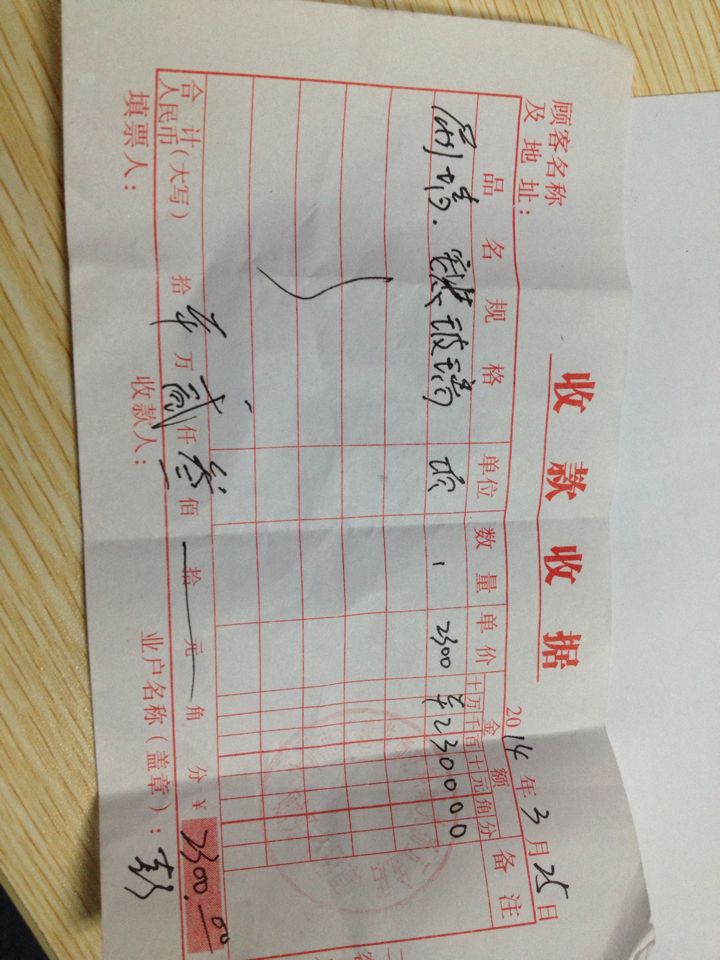 收款收据
顾客名称
及地址：
2014年3月25日
品名规格 单位 数量 单价 金额 备注
十万千百十元角分
隔墙.
玻璃 1 2300 ¥230000
合计
人民币（大写） 拾 万 贰仟叁佰 拾 元 角 分 ¥ 2300.00
填票人： 收款人： 业户名称（盖章）：彭